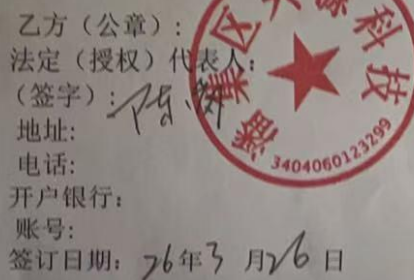 乙方（公章）：
法定（授权）代表人：
（签字）：陈
地址:
电话:
开户银行:
账号:
签订日期: 26年3月26日
潘集区 源科技
3404060123299